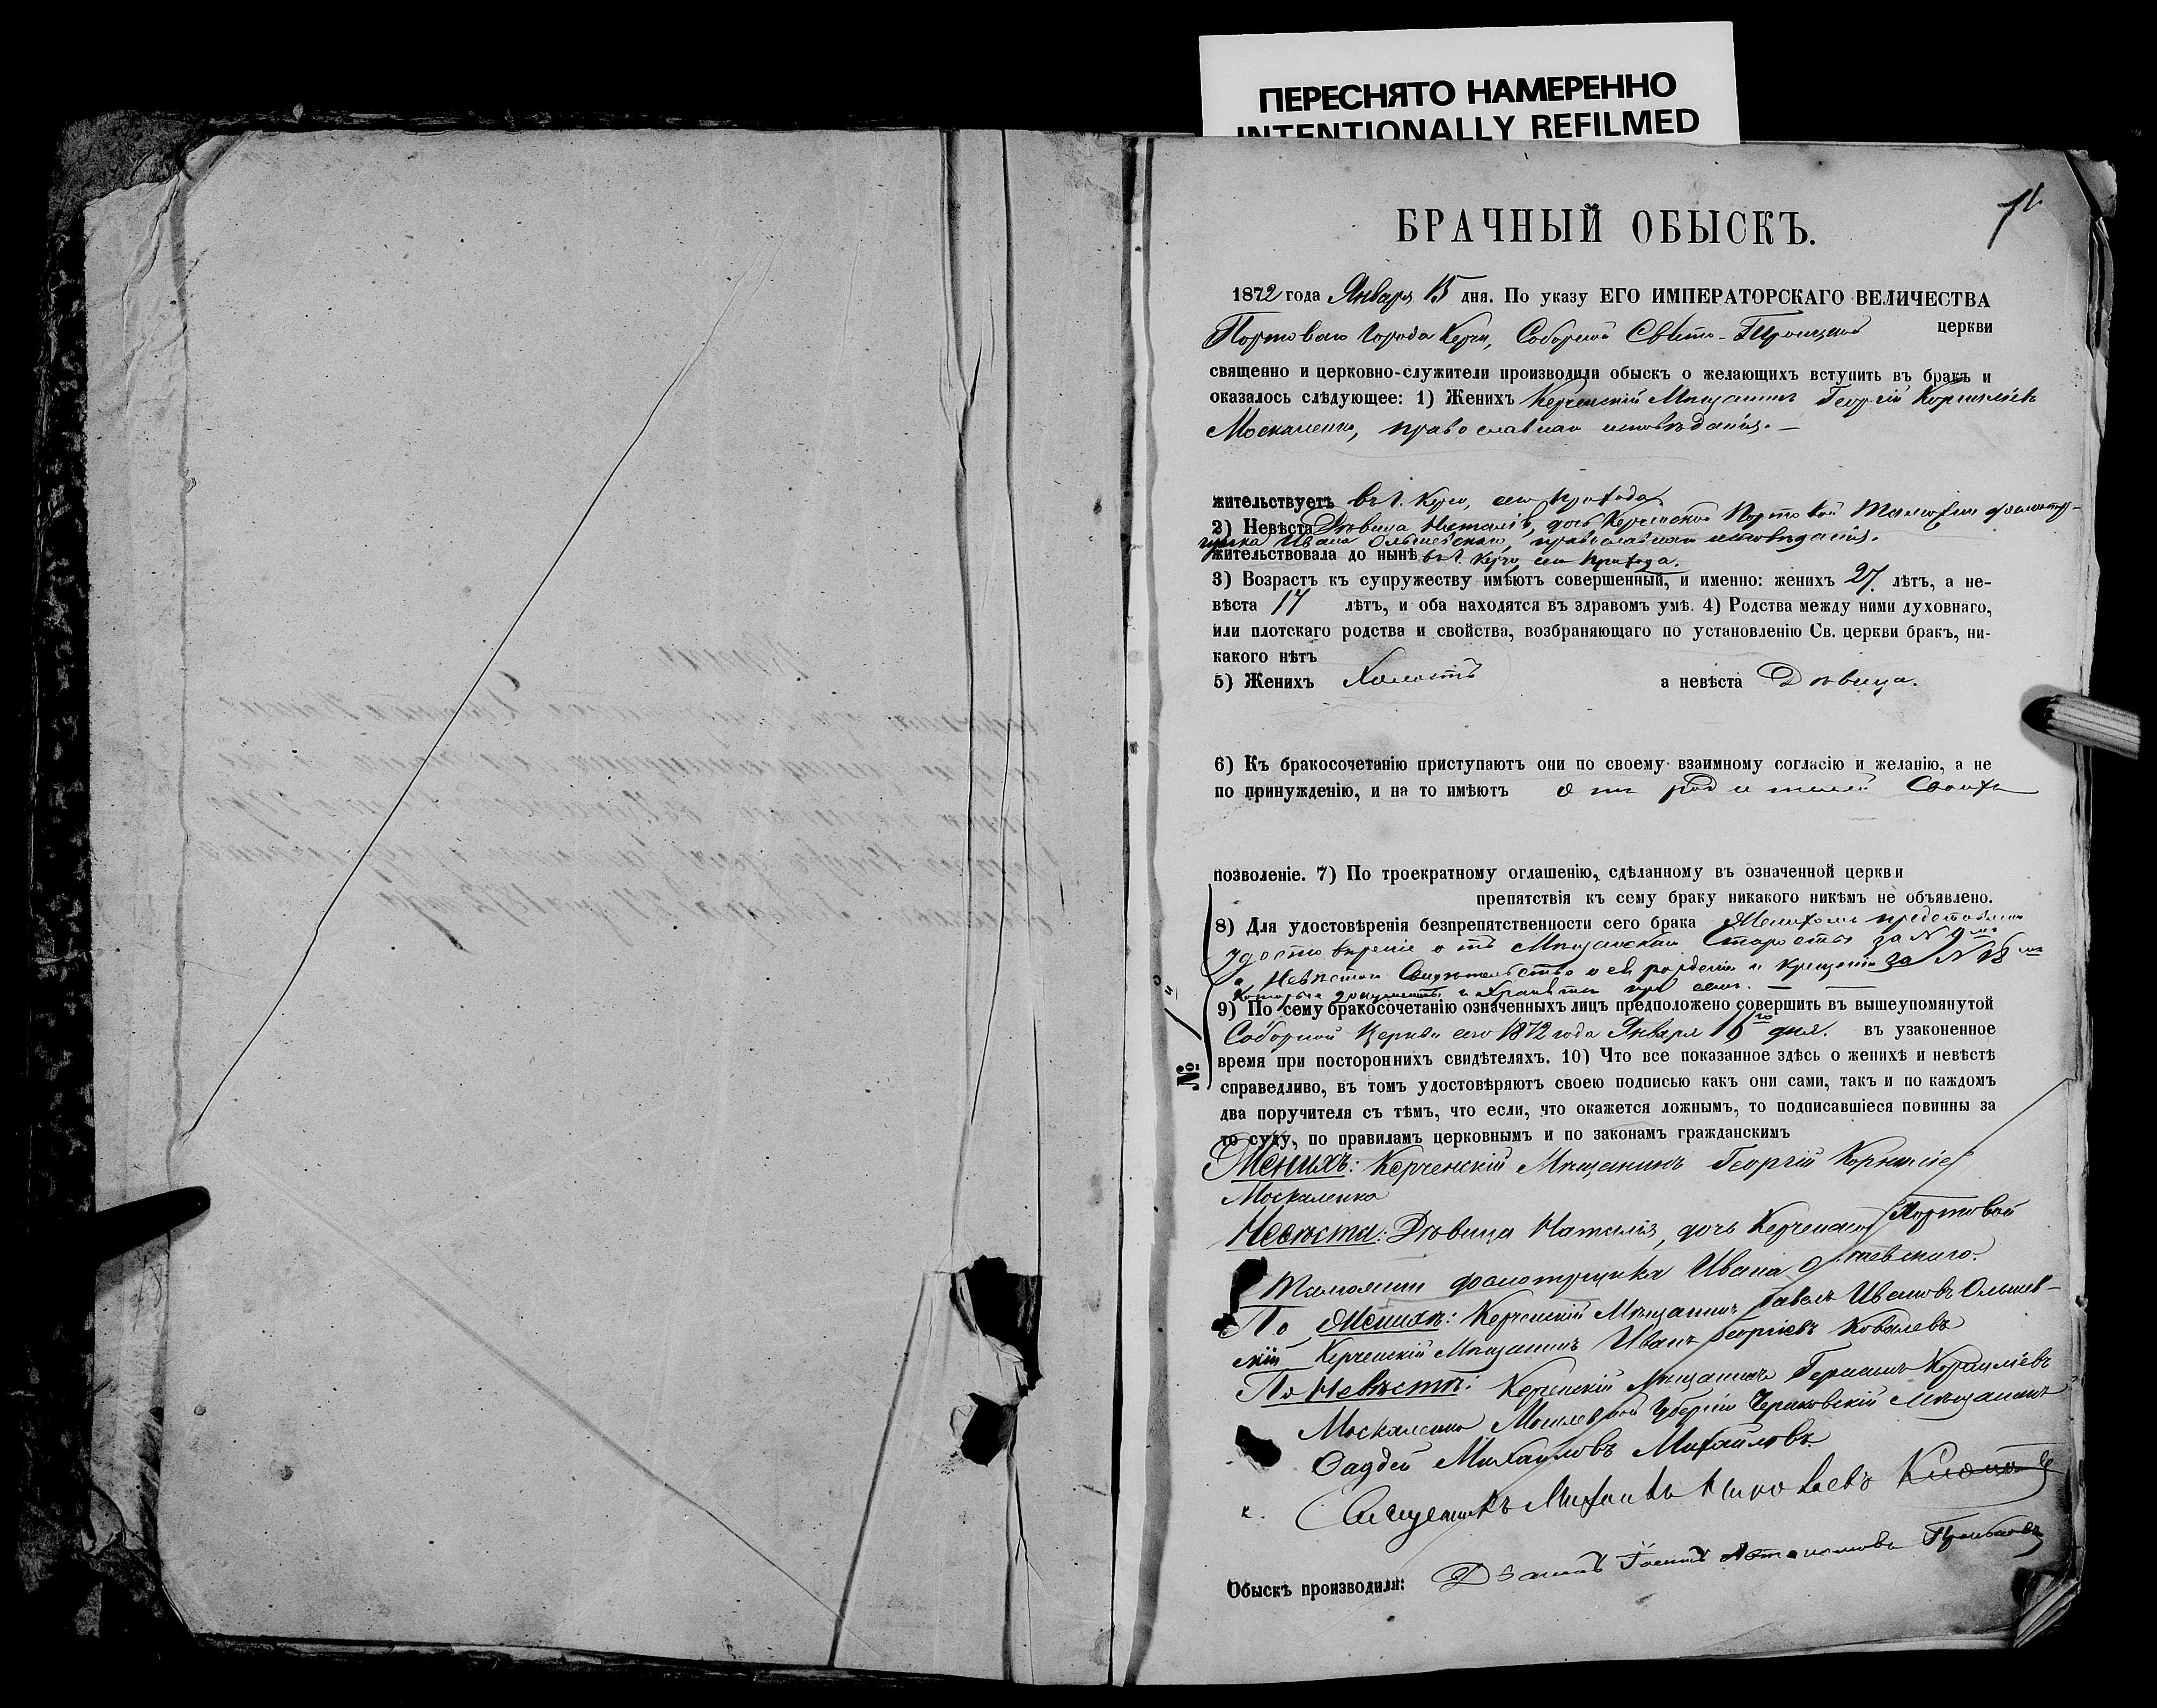 ПЕРЕСНЯТО НАМЕРЕННО
INTENTIONALLY REFILMED
БРАЧНЫЙ ОБЫСКЪ.
1872 года Января 15 дня. По указу ЕГО ИМПЕРАТОРСКАГО ВЕЛИЧЕСТВА
Портоваго города Керчи, Соборной Свято-Троицкой церкви
священно и церковно-служители производили обыскъ о желающихъ вступить въ бракъ и
оказалось слѣдующее: 1) Женихъ Керченскій Мѣщанинъ Георгій Корниліевъ
Москаленко, православнаго исповѣданія.—
жительствуетъ въ г. Керчи, сего прихода
2) Невѣста Дѣвица Наталія, дочь Керченской Портовой Таможни досмотр-
щика Ивана Ольшевскаго, православнаго исповѣданія.
жительствовала до нынѣ въ г. Керчи, сего прихода.
3) Возрастъ къ супружеству имѣютъ совершенный, и именно: женихъ 27 лѣтъ, а не-
вѣста 17 лѣтъ, и оба находятся въ здравомъ умѣ. 4) Родства между ними духовнаго,
или плотскаго родства и свойства, возбраняющаго по установленію Св. церкви бракъ, ни-
какого нѣтъ
5) Женихъ Холостъ а невѣста Дѣвица.
6) Къ бракосочетанію приступаютъ они по своему взаимному согласію и желанію, а не
по принужденію, и на то имѣютъ отъ родителей своихъ
позволеніе. 7) По троекратному оглашенію, сдѣланному въ означенной церкви
препятствія къ сему браку никакого никѣмъ не объявлено.
8) Для удостовѣренія безпрепятственности сего брака Женихомъ представлено
удостовѣреніе отъ Мѣщанскаго Старосты за № 9мъ
а Невѣстою Свидѣтельство о ея рожденіи и крещеніи за № 18мъ
которые документы и хранятся при семъ.—
9) По сему бракосочетанію означенныхъ лицъ предположено совершить въ вышеупомянутой
Соборной Церкви сего 1872 года Января 16го дня. въ узаконенное
время при постороннихъ свидѣтеляхъ. 10) Что все показанное здѣсь о женихѣ и невѣстѣ
№ 1
справедливо, въ томъ удостовѣряютъ своею подписью какъ они сами, такъ и по каждомъ
два поручителя съ тѣмъ, что если, что окажется ложнымъ, то подписавшіеся повинны за
то суду, по правиламъ церковнымъ и по законамъ гражданскимъ
Женихъ: Керченскій Мѣщанинъ Георгій Корниліевъ
Москаленко
Невѣста: Дѣвица Наталія, дочь Керченской Портовой
Таможни досмотрщика Ивана
По Женихѣ: Керченскій Мѣщанинъ Павелъ Ивановъ Ольшев-
скій Керченскій Мѣщанинъ Иванъ Георгіевъ Ковалевъ
По Невѣстѣ: Керченскій Мѣщанинъ Германъ Корниліевъ
Москаленко Могилевской Губерніи Чериковскій Мѣщанинъ
Фаддей Михайловъ Михайловъ
Священникъ Михаилъ Николаевъ
Обыскъ производили: